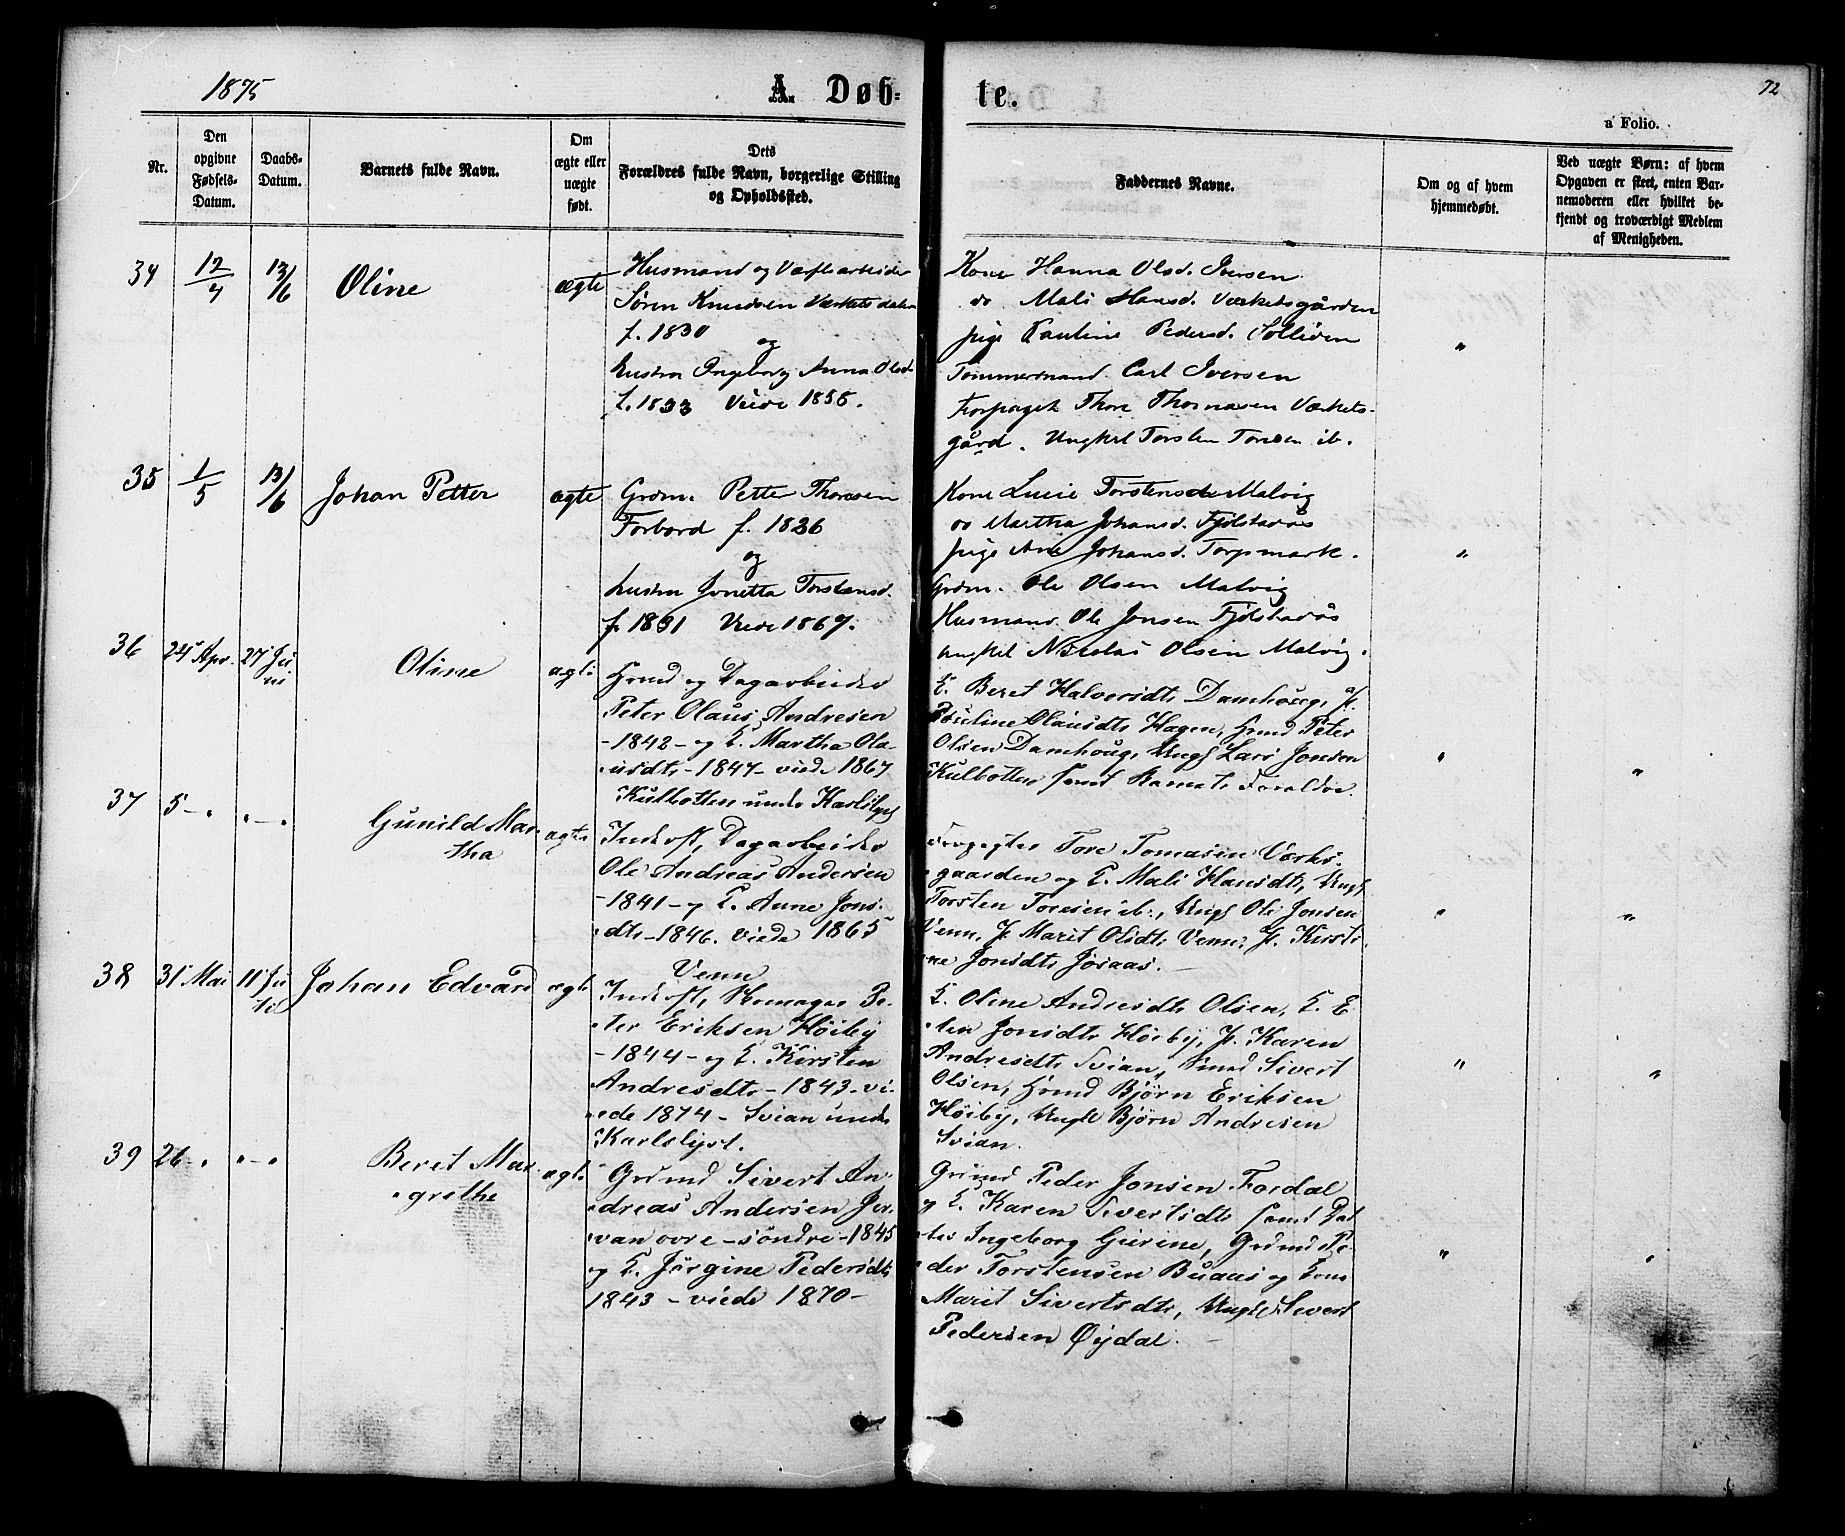 1875
A Døb-
te.
72
a Folio.
Nr.
Den
opgivne
Fødsels-
Datum.
Daabs-
Datum.
Barnets fulde Navn.
Om
ægte eller
uægte
født.
Dets
Forældres fulde Navn, borgerlige Stilling
og Opholdssted.
Faddernes Navne.
Om og af hvem
hjemmedøbt.
Ved uægte Børn: af hvem
Opgaven er skeet, enten Bar-
nemoderen eller hvilket be-
kjendt og troværdigt Medlem
af Menigheden.
34 12/4 13/6 Oline ægte
Husmand og Værftsarbeider
Søren Knudsen Værketsdalen
f. 1830
og
hustru Ingeborg Anna Olsd.
f. 1833 Viede 1855.
Kone Hanna Olsd. Iversen
do Mali Hansd. Værketsgården
pige Pauline Pedersd. Solliden
Tømmermand. Carl Iversen
Forpaget Thore Thomasen Værkets-
gård. Ungkel Torsten Toresen ib.
"
35 1/5 13/6 Johan Petter ægte
Grdm. Petter Thoresen
Forbord f. 1826
og
hustru Jonetta Torstensd.
f. 1831 Viede 1867.
Kone Lucie Torstensd. Malvig
do Martha Johansd. Fjølstadås
pige Ane Johansd. Torpmark.
Grdm. Ole Olsen Malvig
Husmand. Ole Jonsen Fjølstadås
ungkel Nicolas Olsen Malvig.
"
36 24 Apr. 27 Ju
ni
Oline ægte
Hsmd og Dagarbeider
Peter Olaus Andresen
-1842- og K. Martha Ola-
usdtr -1847- viede 1867
Kulbotten under Karlslyst
K. Beret Halvorsdtr Damhoug, P.
Pauline Olausdtr Hagen, Hsmd Peter
Olsen Damhoug, Ungk Lars Jonsen
Kulbotten samt Barnets Forældre.
" "
37 5 - " " - "
Gunild Mar-
tha
ægte
Inderst, Dagarbeider
Ole Andreas Andersen
-1841- og K. Anne Jons-
dtr -1846. viede 1865
Venn
Forpagter Tore Tomasen Værks-
gaarden og K. Mali Hansdtr, Ungk
Torsten Toresen ib., Ungk Ole Jonsen
Venn, P. Marit Olsdtr Venn, P. Kirsti-
ne Jonsdtr Josaas.
" "
38 31 Mai 11 Ju
li
Johan Edvard ægte
Inderst, Skomager Pe-
ter Eriksen Høiby
-1844- og K. Kirsten
Andresdtr -1843- vi-
ede 1874 - Svian under
Karlslyst.
K. Oline Andresdtr Olsen, K. E-
len Jonsdtr Høiby, P. Karen
Andresdtr Svian, Smed Sivert
Olsen, Hsmd Bjørn Eriksen
Høiby, Ungk Bjørn Andresen
Svian.
" "
39 26 - " " - "
Beret Mar-
grethe
ægte
Grdmd Sivert An-
dreas Andersen Jer-
van ovre - søndre -1845
og K. Jørgine Pedersdtr
1843 - viede 1870 -
Grdmd Peder Jonsen Fordal
og K. Karen Sivertsdtr samt Dat-
ter Ingeborg Gurine, Grdmd Pe-
der Torstensen Buaas og Kone
Marit Sivertsdtr, Ungk Sivert
Pedersen Øydal.
" "